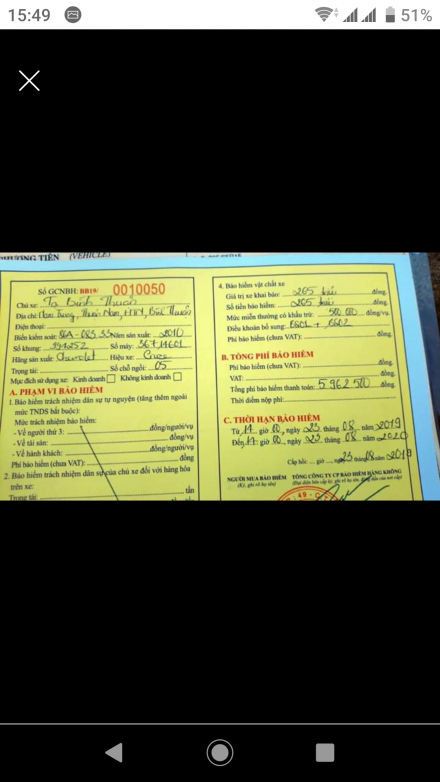 15:49
51%
PHƯƠNG TIỆN (VEHICLE)
Số GCNBH: BB19/ 0010050
Chủ xe: Tạ Bình Thuận
Địa chỉ: Nam, HTN, Bình Thuận
Điện thoại:
Biển kiểm soát: 86A-083.35 Năm sản xuất: 2010
Số khung: Số máy:
Hãng sản xuất: Chevrolet Hiệu xe: Cruze
Trọng tải: Số chỗ ngồi: 05
Mục đích sử dụng xe: Kinh doanh Không kinh doanh
A. PHẠM VI BẢO HIỂM
1. Bảo hiểm trách nhiệm dân sự tự nguyện (tăng thêm ngoài
mức TNDS bắt buộc):
Mức trách nhiệm bảo hiểm:
- Về người thứ 3: đồng/người/vụ
- Về tài sản: đồng/vụ
- Về hành khách: đồng/người/vụ
Phí bảo hiểm (chưa VAT): đồng
2. Bảo hiểm trách nhiệm dân sự của chủ xe đối với hàng hóa
trên xe:
Trọng tải: tấn
4. Bảo hiểm vật chất xe
Giá trị xe khai báo: 265 đồng.
Số tiền bảo hiểm: 265 đồng.
Mức miễn thường có khấu trừ: 500.000 đồng/vụ
Điều khoản bổ sung: BS01 + BS02
Phí bảo hiểm (chưa VAT): đồng.
B. TỔNG PHÍ BẢO HIỂM
Phí bảo hiểm (chưa VAT): đồng.
VAT: đồng.
Tổng phí bảo hiểm thanh toán: 5 962 500 đồng.
Thời điểm nộp phí:
C. THỜI HẠN BẢO HIỂM
Từ 11 giờ 00, ngày 23 tháng 08 năm 2019
Đến 11 giờ 00, ngày 23 tháng 08 năm 2020
Cấp hồi: giờ ngày 23 tháng 08 năm 2019
NGƯỜI MUA BẢO HIỂM TỔNG CÔNG TY CP BẢO HIỂM HÀNG KHÔNG
(Ký, ghi rõ họ tên)